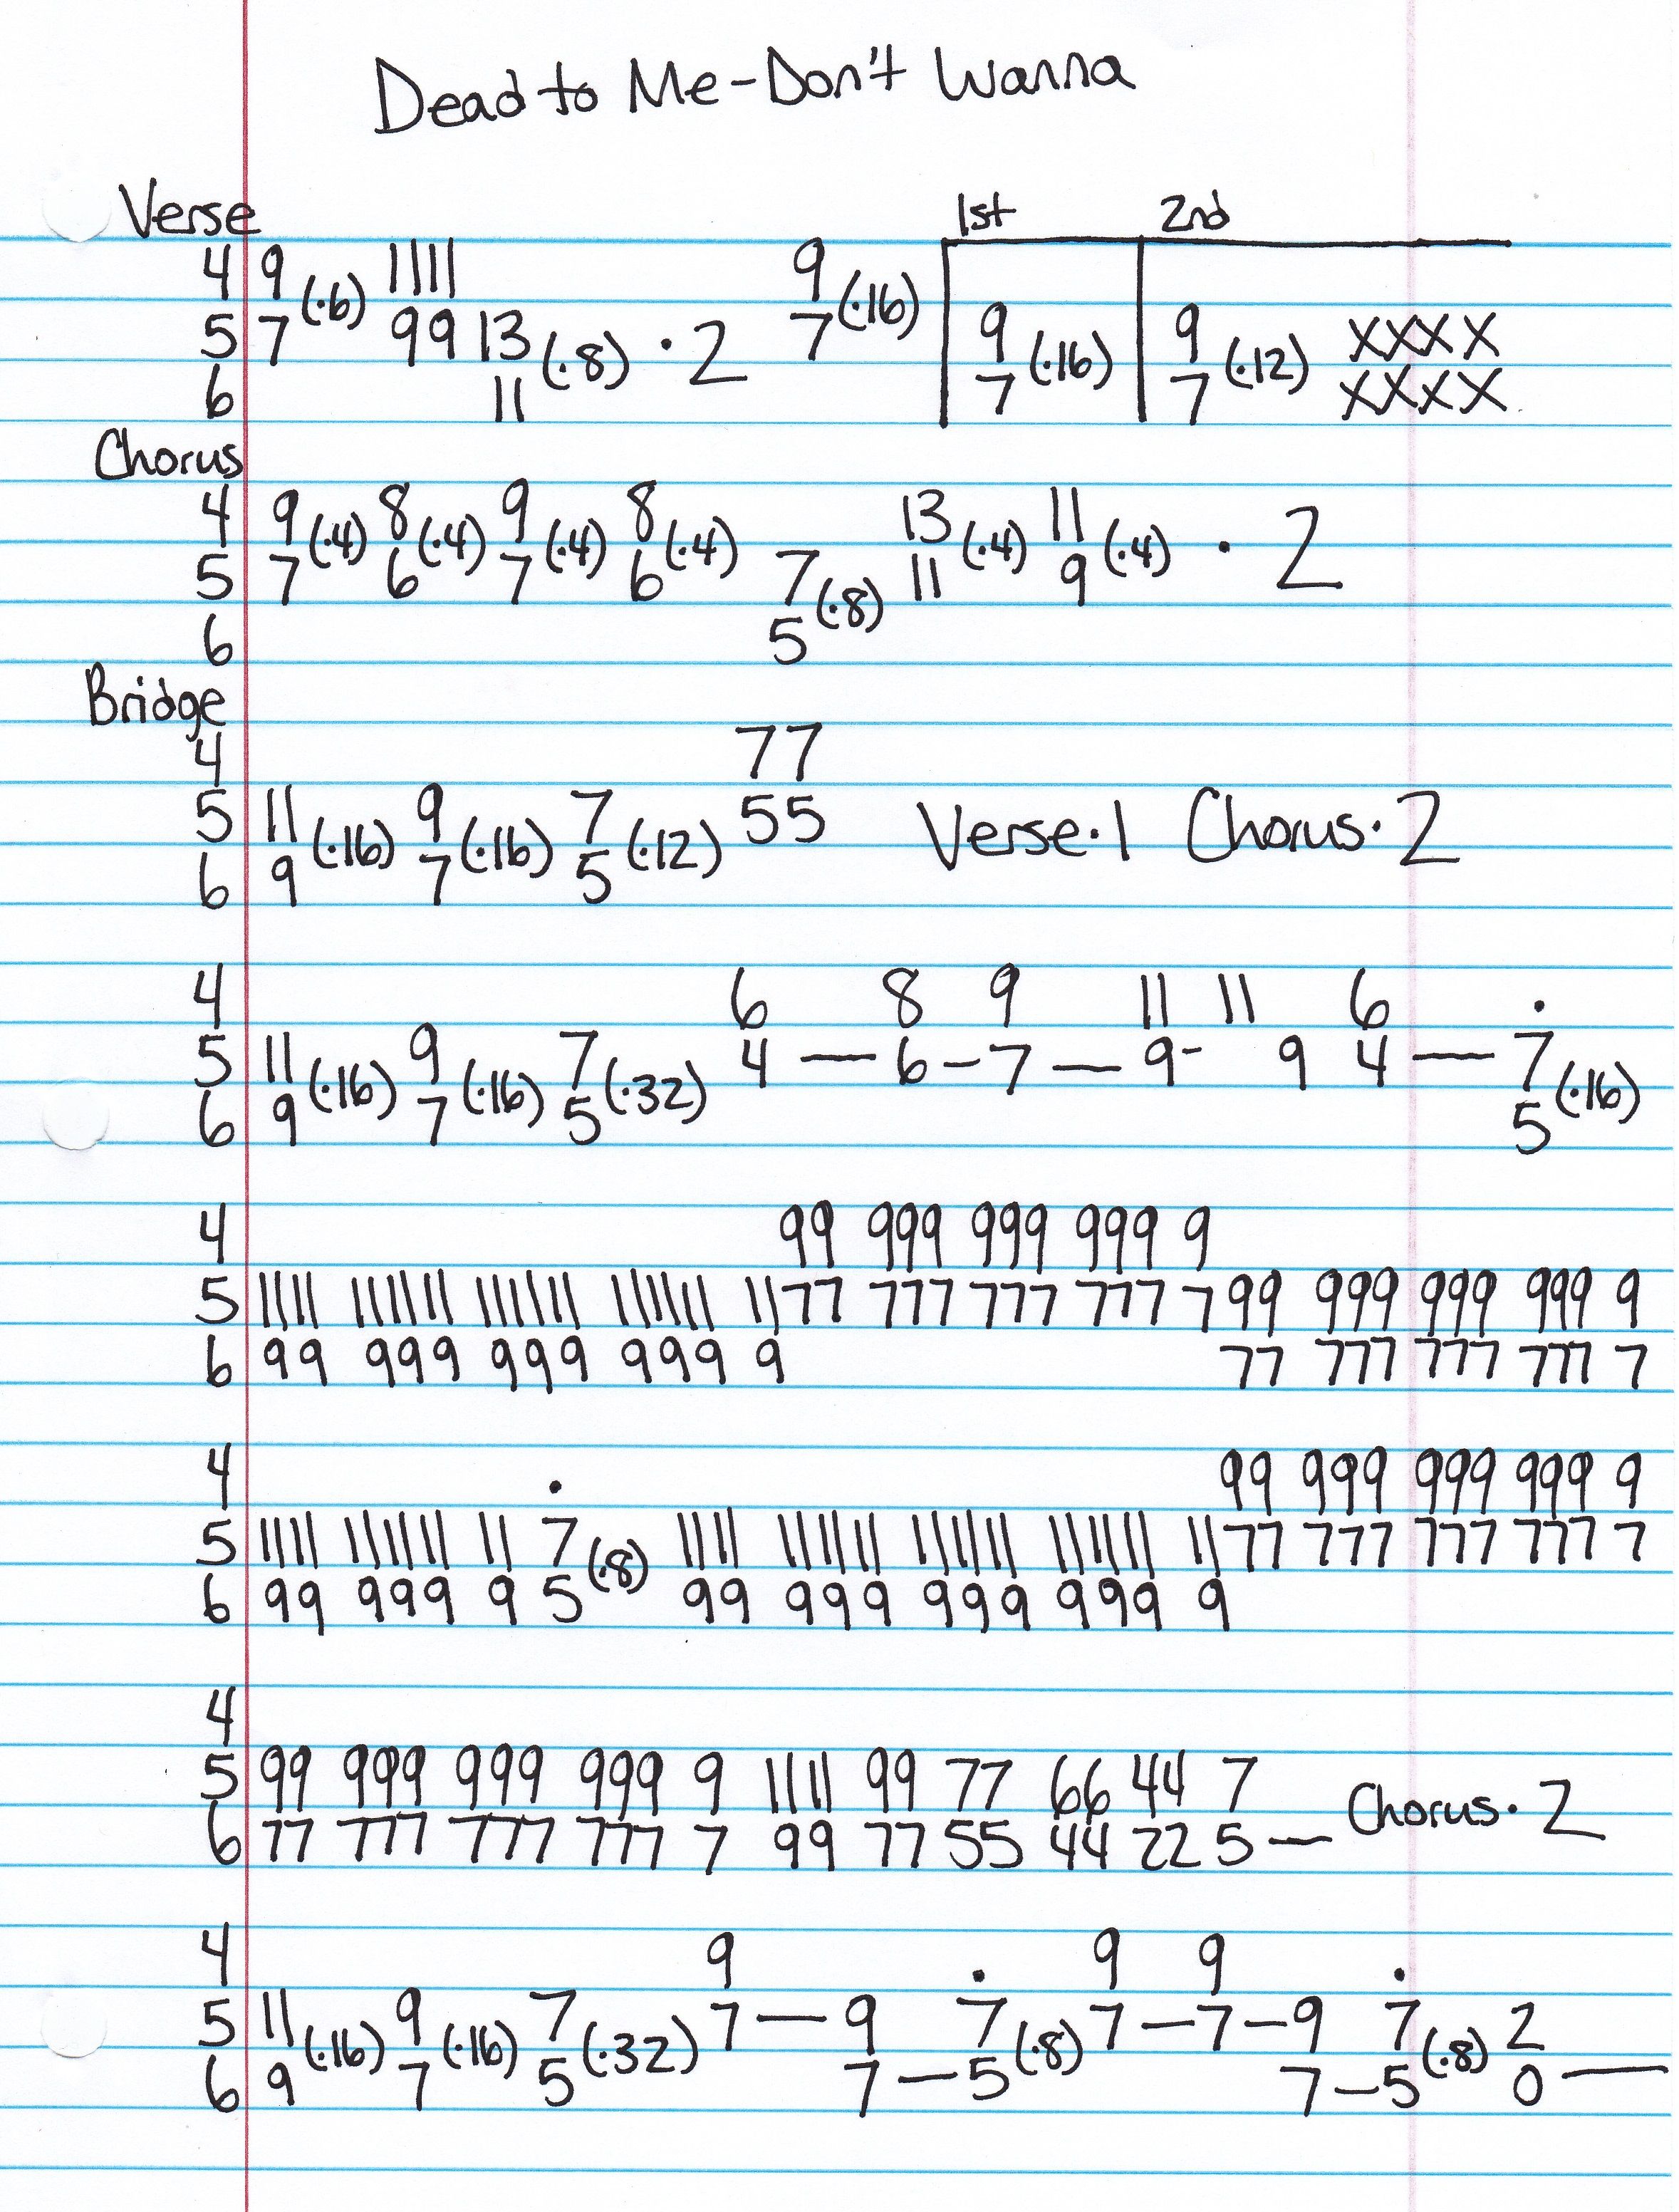 Dead to Me - Don't Wanna
Verse 1st 2nd
4 9 (·6) 11 11 9 (·16)
5 7 99 13 (·8) · 2 7 9 (·16) 9 (·12) XXXX
6 11 7 7 XXXX
Chorus
4 9 (·4) 8 (·4) 9 (·4) 8 (·4) 13 (·4) 11 (·4) · 2
5 7 6 7 6 7 (·8) 11 9
6 5
Bridge
4 77
5 11 (·16) 9 (·16) 7 (·12) 55 Verse·1 Chorus·2
6 9 7 5
4 6 8 9 11 11 6 .
5 11 (·16) 9 (·16) 7 (·32) 4 — 6 - 7 — 9 - 9 4 — 7 (·16)
6 9 7 5 5
4 99 999 999 999 9
5 1111 111111 111111 111111 11 77 777 777 777 7 99 999 999 999 9
6 99 999 999 999 9 77 777 777 777 7
4 . 99 999 999 999 9
5 1111 111111 11 7 (·8) 1111 111111 111111 111111 11 77 777 777 777 7
6 99 999 9 5 99 999 999 999 9
4
5 99 999 999 999 9 1111 99 77 66 44 7 Chorus·2
6 77 777 777 777 7 99 77 55 44 22 5 —
4 9 . 9 9 .
5 11 (·16) 9 (·16) 7 (·32) 7 — 9 7 (·8) 7 — 7 — 9 7 (·8) 2
6 9 7 5 7 — 5 7 — 5 0 —